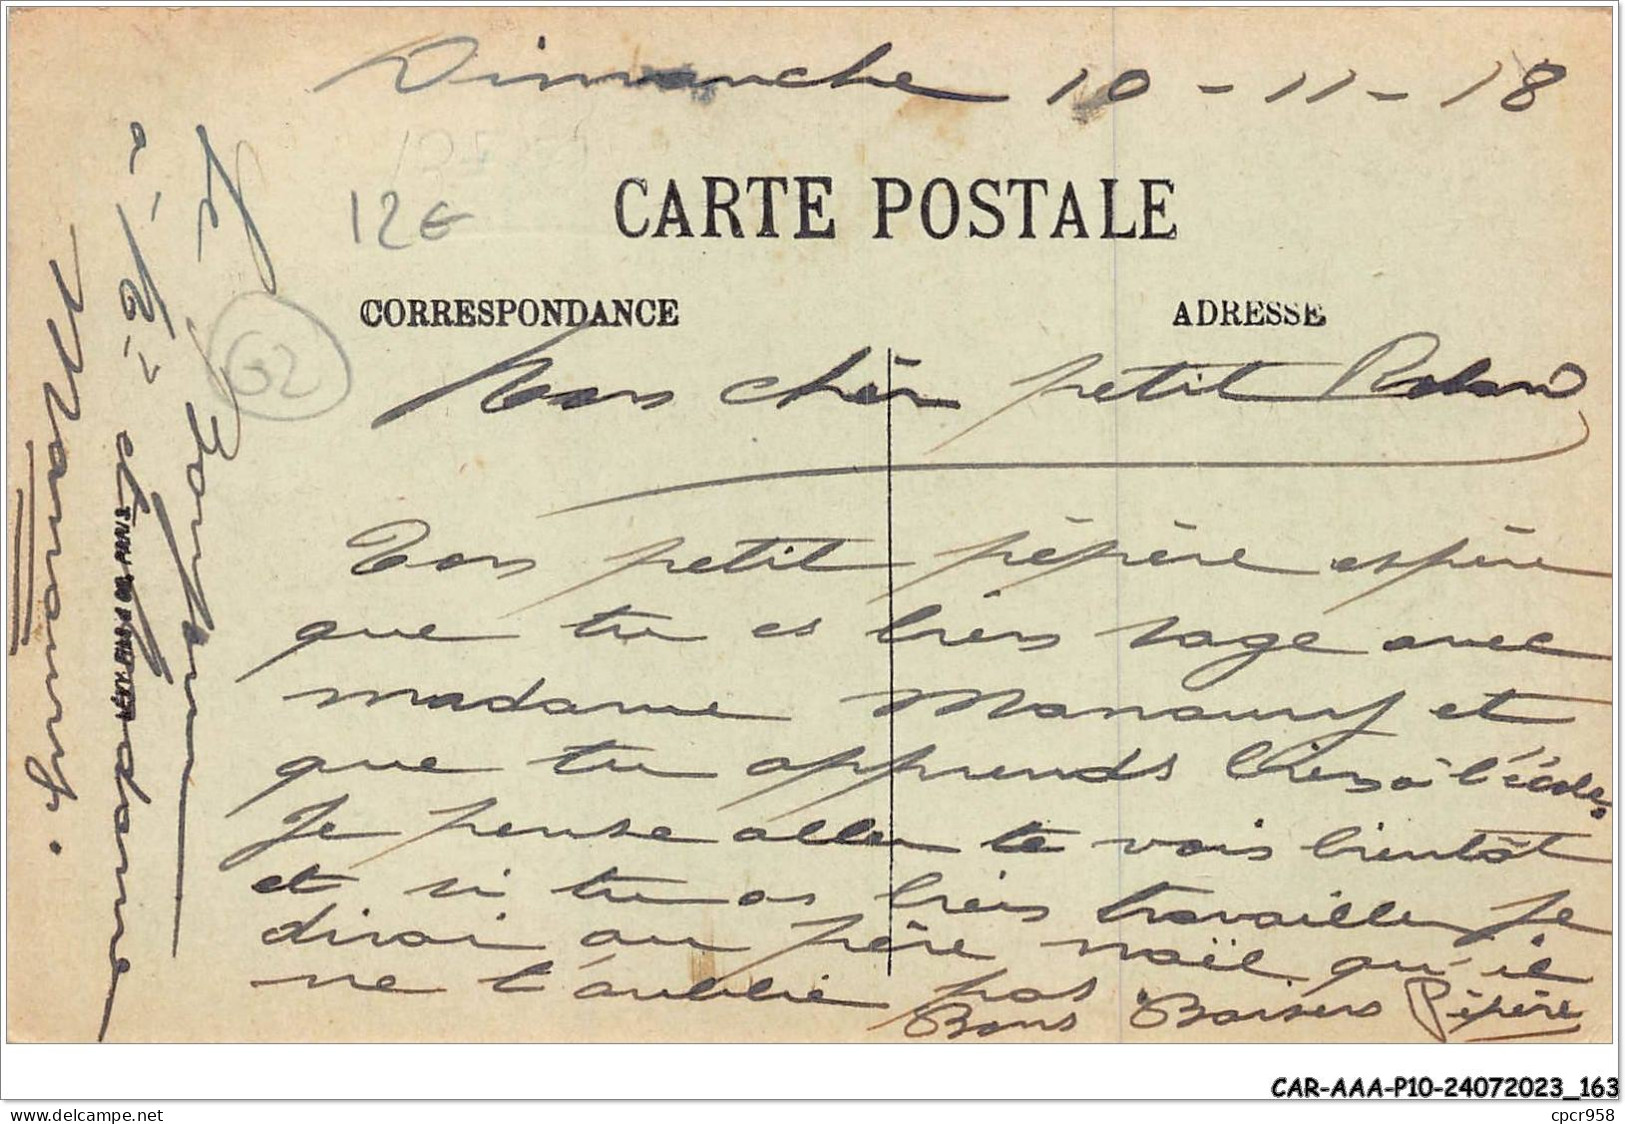 Dimanche 10-11-18
12€
CARTE POSTALE
CORRESPONDANCE
ADRESSE
G2
Mon chèr petit Roland
Ton petit pépère espère
que tu es bien sage avec
madame Manoury et
que tu apprends bien à l'école.
Je pense aller te vois bientôt
et si tu as bien travailler je
dirai au père noël qu'il
ne t'oublie pas
Bons Baisers Pépère
Le bonjour
à Mr et
madame
Manoury.
CAR-AAA-P10-24072023_163
www.delcampe.net
cpcr958